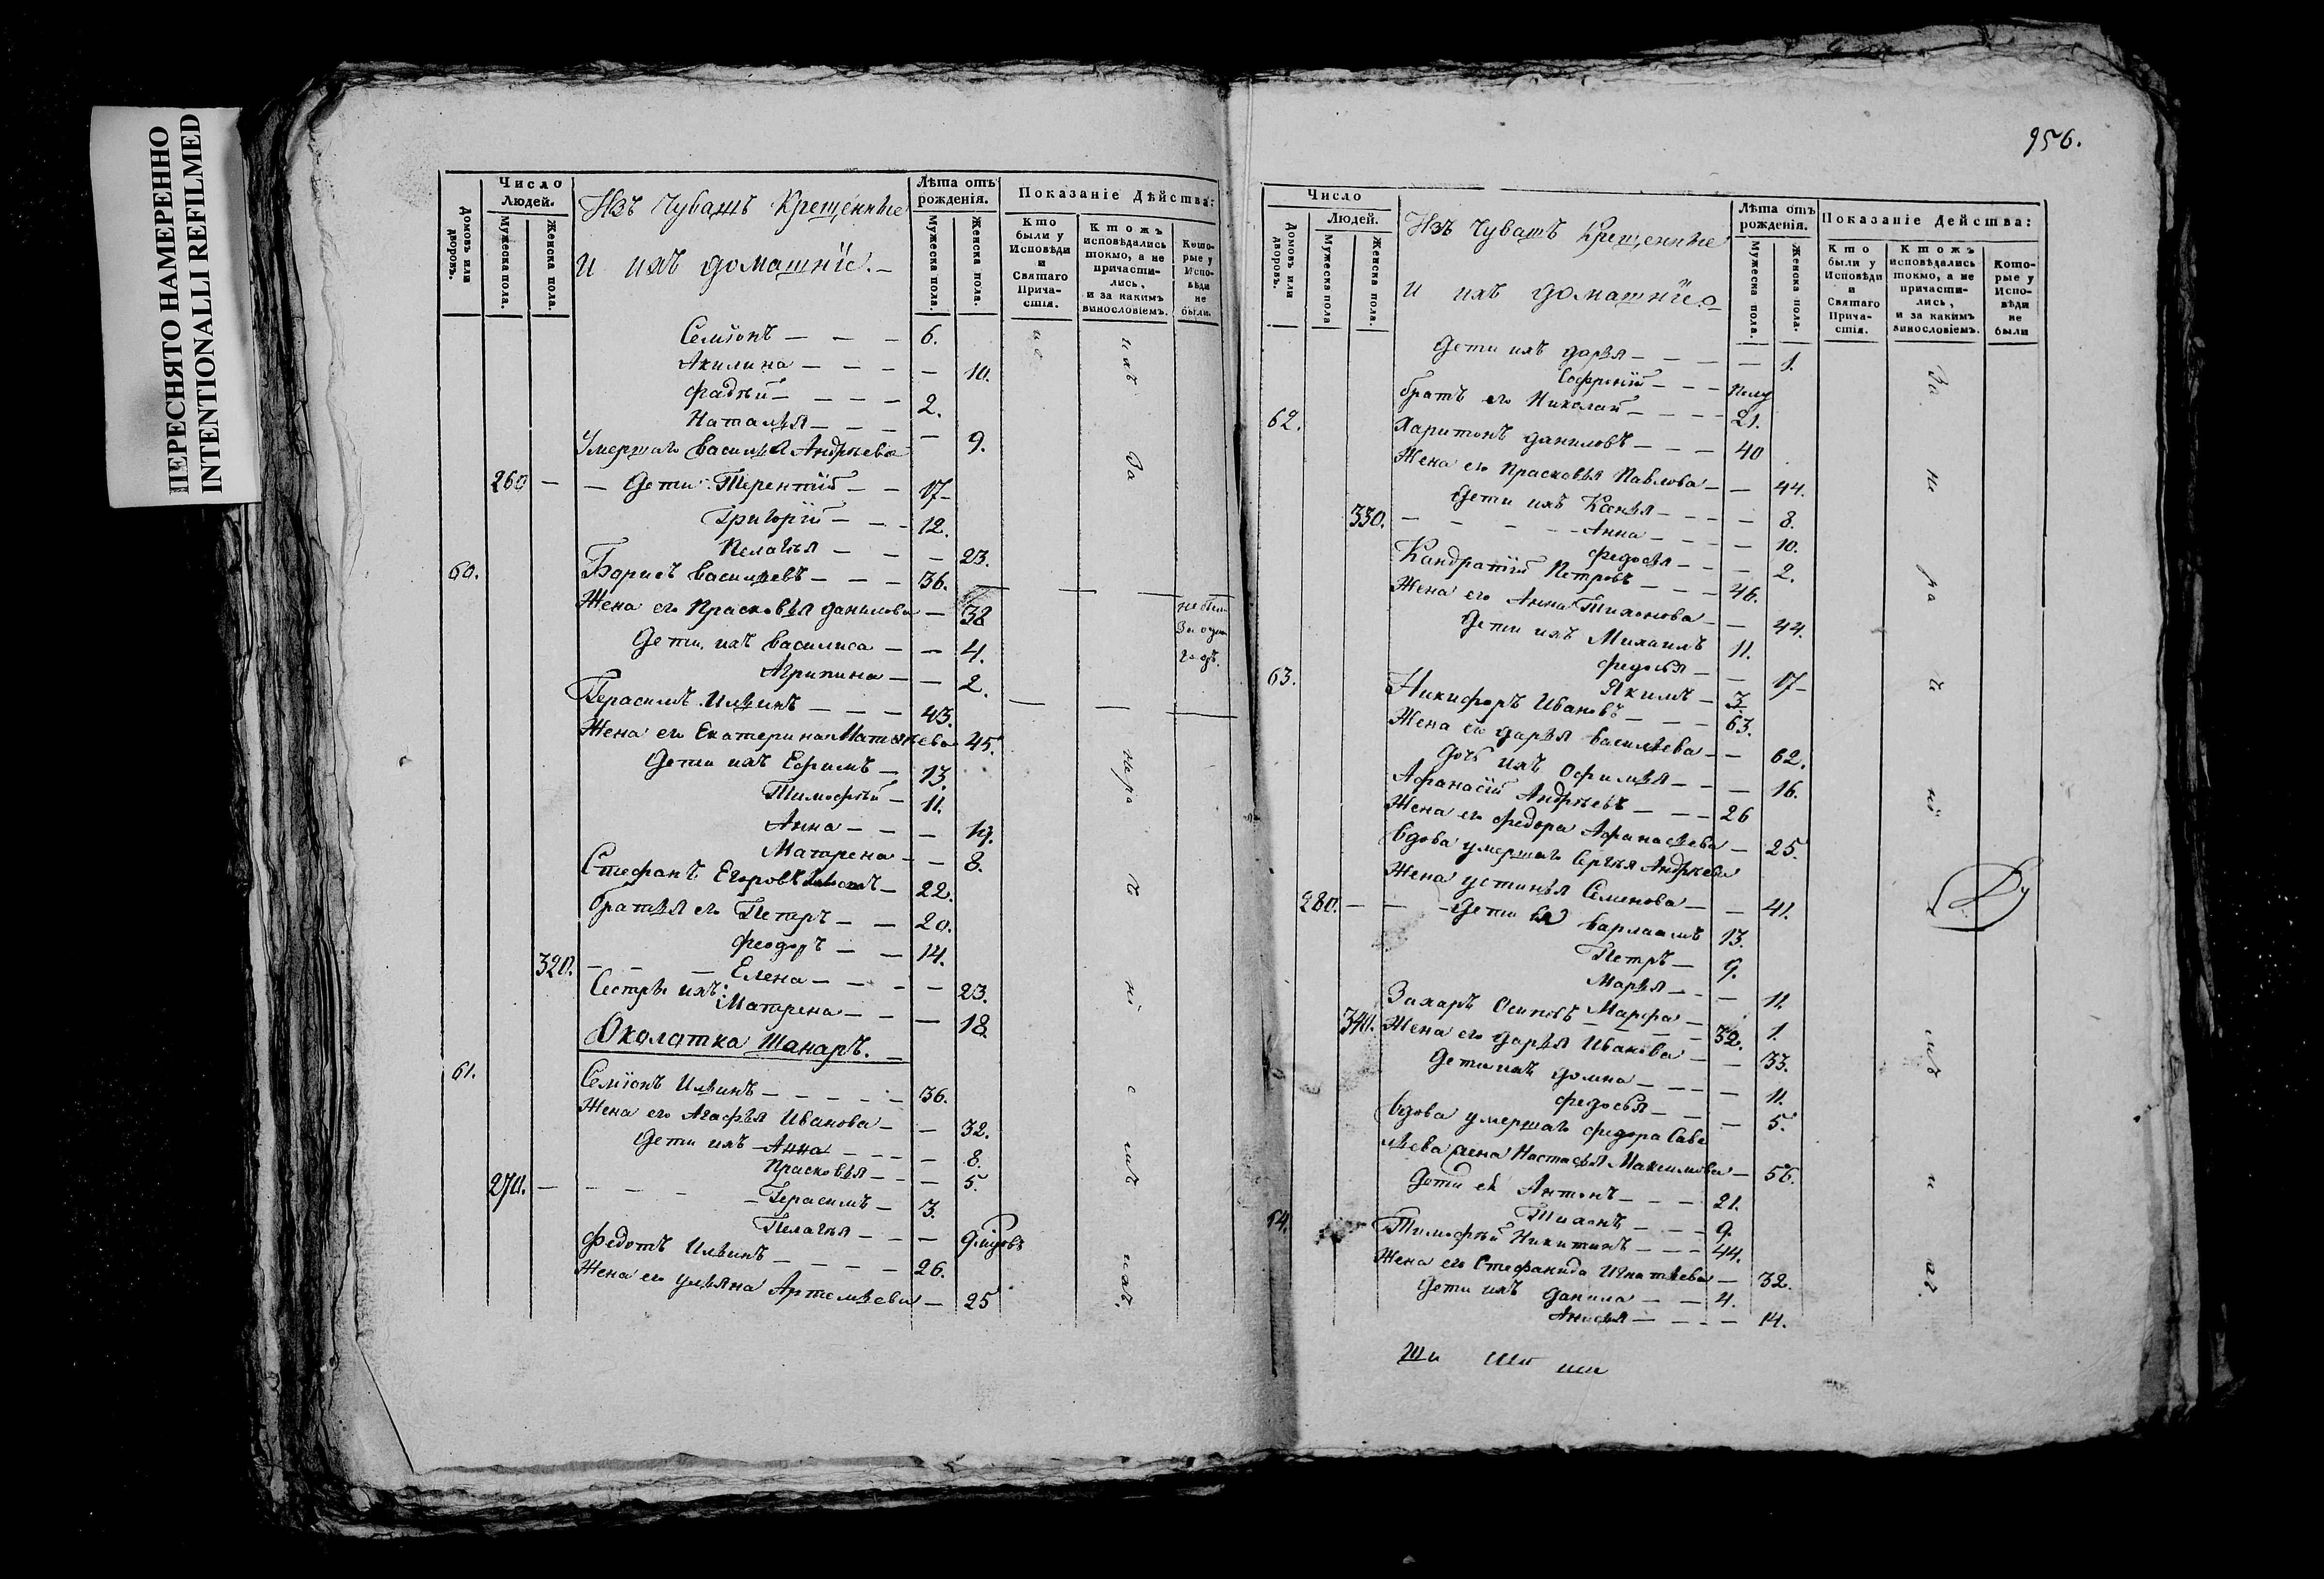 ПЕРЕСНЯТО НАМЕРЕННО
INTENTIONALLI REFILMED
Домовъ или дворовъ.
Число Людей.
Мужеска пола.
Женска пола.
Изъ Чувашъ Крещенные
и ихъ домашніе.
Лѣта отъ рожденія.
Мужеска пола
Женска пола.
Показаніе Дѣйства:
Кто были у Исповѣди и Святаго Прича-стія.
Ктожъ исповѣдались токмо, а не причасти-лись, и за какимъ винословіемъ.
Кото-рые у Испо-вѣди не были.
Семіонъ — — — 6.
Акилина — — — — 10.
Фадѣй — — — — 2.
Наталья — — — — 9.
Умершаго Василья Андрѣева
260 — — Дети: Терентій — — 17
Григорій — — — 12.
Пелагѣя — — — 23.
60. Борисъ Васильевъ — — — 36.
Жена его Прасковья Данилова — 38
Дети ихъ Василиса — — 4.
Агрипина — — 2.
не были
За
годъ.
Герасимъ Ильинъ — — — 43.
Жена его Екатерина Матвѣева 45.
Дети ихъ Ефимъ — 13.
Тимофѣй — 11.
Анна — — — 19.
Матрена — — 8.
Стефанъ Егоровъ — 22.
Братья его Петръ — — 20.
Феодоръ — — 14.
320. — — — Елена — — — — 23.
Сестры ихъ: Матрена — — — 18.
Околотка Шанаръ.
61. Семіонъ Ильинъ — — — — — 36.
Жена его Агафья Иванова — — 32.
Дети ихъ Анна — — — — 8.
Прасковья — — — 5.
270. — — — — — Герасимъ — 3.
Пелагья — — —
Федотъ Ильинъ — — — — 26.
Жена его Ульяна Артемьева — 25
ихъ
За
нера
ч
ні
е
мъ
ихъ.
956.
Домовъ или дворовъ.
Число Людей.
Мужеска пола
Женска пола.
Изъ Чувашъ Крещенные
и ихъ домашніе
Лѣта отъ рожденія.
Мужеска пола.
Женска пола.
Показаніе Действа:
Кто были у Исповѣди и Святаго Прича-стія.
Ктожъ исповѣдались токмо, а не причасти-лись, и за какимъ винословіемъ.
Кото-рые у Испо-вѣди не были
Дети ихъ Дарья — — — — 1.
Софроній — — — Полу
братъ его Николай — — — — 21.
62. Харитонъ Даниловъ — — — 40
Жена его Прасковья Павлова — — 44.
Дети ихъ — — — — 8.
330. — — — — Анна — — — — 10.
Федосья — — — 2.
Кандратій Петровъ — — — 46.
Жена его Анна Тихонова — — 44.
Дети ихъ Михаилъ 11.
Федосья — — 17
Якимъ — 3.
63. Никифоръ Ивановъ — — — 63.
Жена его Дарья Васильева — — 62.
Дочь ихъ Офимья — — — 16.
Афанасій Андрѣевъ — — — 26
Жена его Федора Афанасьева — 25.
Вдова умершаго Сергѣя Андрѣева
Жена Устинья Семенова — — 41.
280. — — — Дети ея Варлаамъ 13.
Петръ — 9.
Марья — — — 11.
Марфа — — 1.
Захаръ Осиповъ — — — — 32.
340. Жена его Дарья Иванова — — 33.
Дети ихъ Домна — — — — 11.
Федосья — — — 5.
Вдова умершаго Федора Саве
льева жена Настасья Максимова — 56.
Дети ея Антонъ — — — 21.
Тихонъ — — — 9.
64. Тимофѣй Никитинъ — — — 44.
Жена его Стефанида Игнатьева — 32.
Дети ихъ Данила — — 4.
Анисья — — — — 14.
За
не
ра
ч
ні
е
мъ
и
хъ.